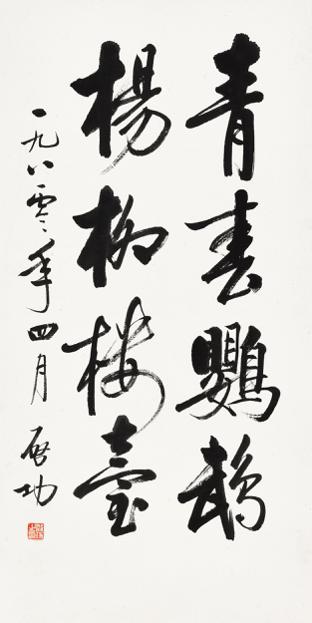 青春鸚鵡
楊柳樓臺
一九八零年四月 啟功